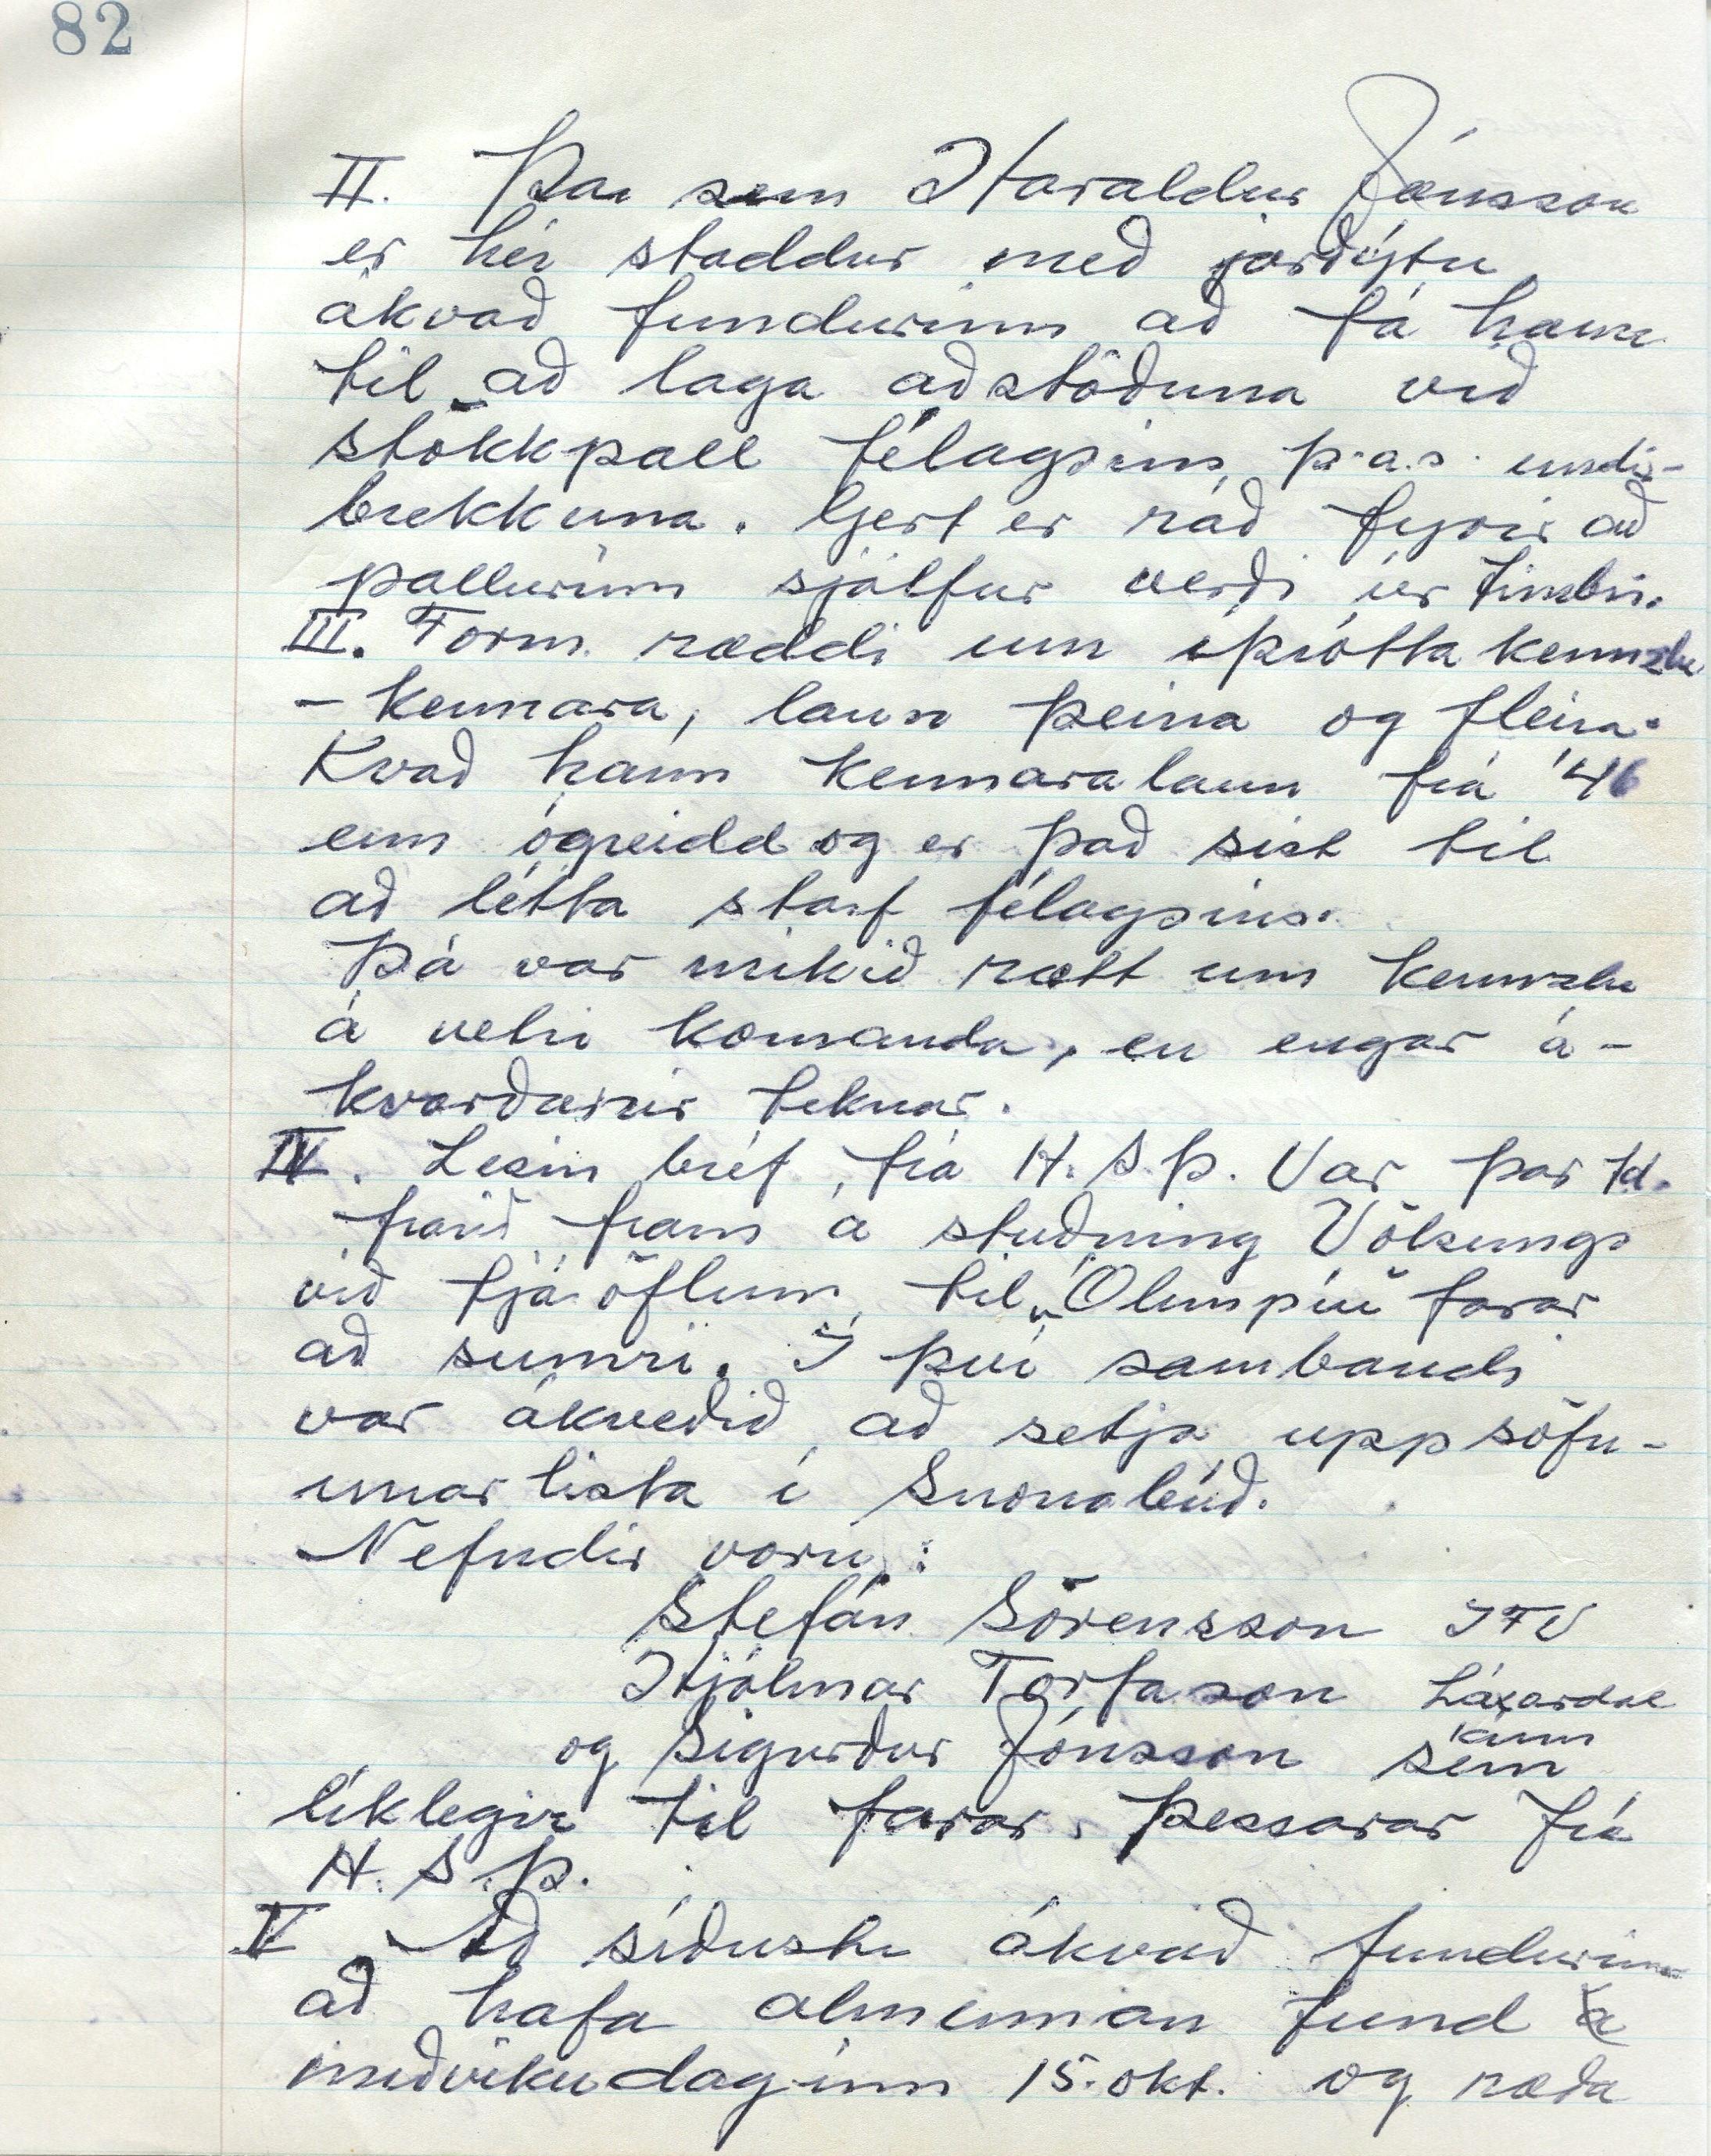 82
II. Þar sem Haraldur Jónsson
er hér staddur með jarðýtu
ákvað fundurinn að fá hann
til að laga aðstöðuna við
stökkpall félagsins, þ.a.s. undir-
brekkuna. Gert er ráð fyrir að
pallurinn sjálfur verði úr timbri.
III. Form. ræddi um íþrótta kennslu
- kennara, laun þeirra og fleira.
Kvað hann kennaralaun frá '46
enn ógreidd og er það síst til
að létta starf félagsins.
Þá var mikið rætt um kennslu
á vetri komanda, en engar á-
kvarðanir teknar.
IV. Lesin bréf frá H.S.Þ. Var þar td.
farið fram á stuðning Völsungs
við fjáröflun til „Olimpíu" farar
að sumri. Í því sambandi
var ákveðið að setja upp söfn-
unarlista í Snorrabúð.
Nefndir voru:
Stefán Sörensson ÍFV
Hjálmar Torfason Láxardal
og Sigurður Jónsson sem kunn
líklegir til farar þessarar frá
H.S.Þ.
V. Að síðustu ákvað fundurinn
að hafa almennan fund
miðvikudaginn 15. okt. og ræða